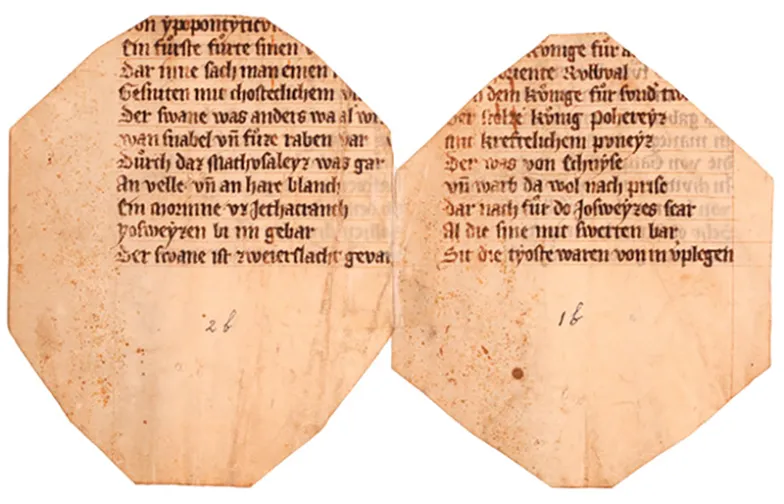 von ypopontyticon
Ein fúrste fúrte sinen
Dar inne sach man einen
Gesniten mit chosteclichem
Der swane was anders wa al
wan snabel vñ fúze raben var
Dúrch daz Machvsaleyz was gar
An velle vñ an hare blanch
Ein mornine vz Jethacranch
yosweyzen bi im gebar
Der swane ist zweierslacht geva
2 b
kónige fúr
Rvbval
dem kónige fúr
Der stolze kúnig poheveyz
mit kreftelichem poneyz
Der was von Ethnyse
vñ warb da wol nach prise
dar nach fúr do Josweyzes scar
Al die sine mit swerten bar
Sit die tyoste waren von in vplegen
1 b